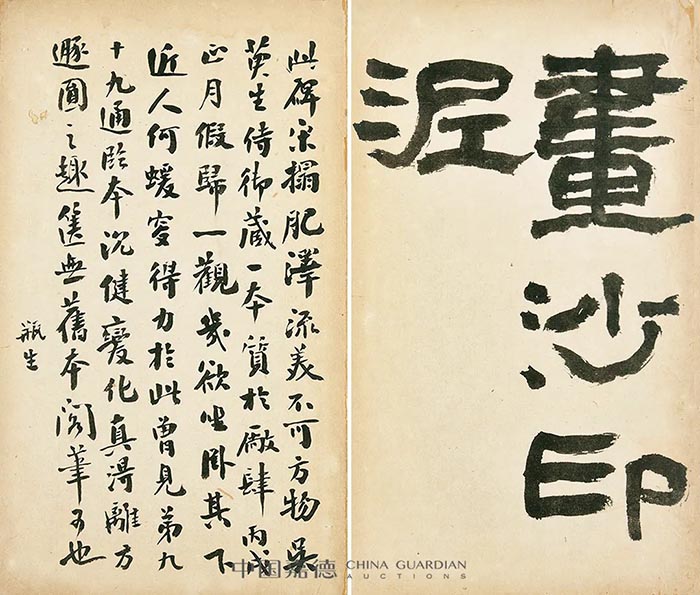 畫沙印
泥
此碑宋搨肥澤流美不可方物吳
生侍御藏一本質於廠肆丙戌
正月假歸一觀幾欲坐卧其下
近人何蝯叟得力於此曾見第九
十九通臨本沉健變化真得離方
遯圓之趣篋無舊本閣筆可也
瓶生
中国嘉德 CHINA GUARDIAN
AUCTIONS